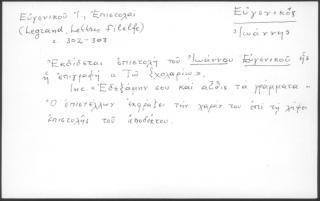 Εὐγενικοῦ Ἰ., Ἐπιστολαί
(Legrand, Lettres Filelfe)
σ. 302-303
Εὐγενικός
Ἰωάννης
Ἐκδίδεται ἐπιστολὴ τοῦ Ἰωάννου Εὐγενικοῦ ἧς
ἡ ἐπιγραφὴ «Τῷ Σχολαρίῳ»,
Inc. «Ἐδεξάμην σου καὶ αὖθις τὰ γράμματα»
Ὁ ἐπιστέλλων ἐκφράζει τὴν χαράν του ἐπὶ τῇ λήψει
ἐπιστολῆς τοῦ ἀποδέκτου.